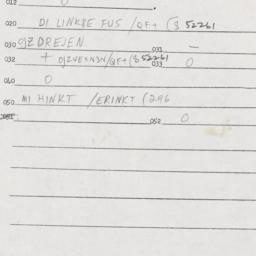 012 0
020 DI LINKSE FUS /QF+ ($ 52261
030 OJZDREJEN 031 -
032 + OJZVEXNBN/QF+($ 52261 033 0
040 0
050 MI HINKT /ERINKT (296
051 052 0